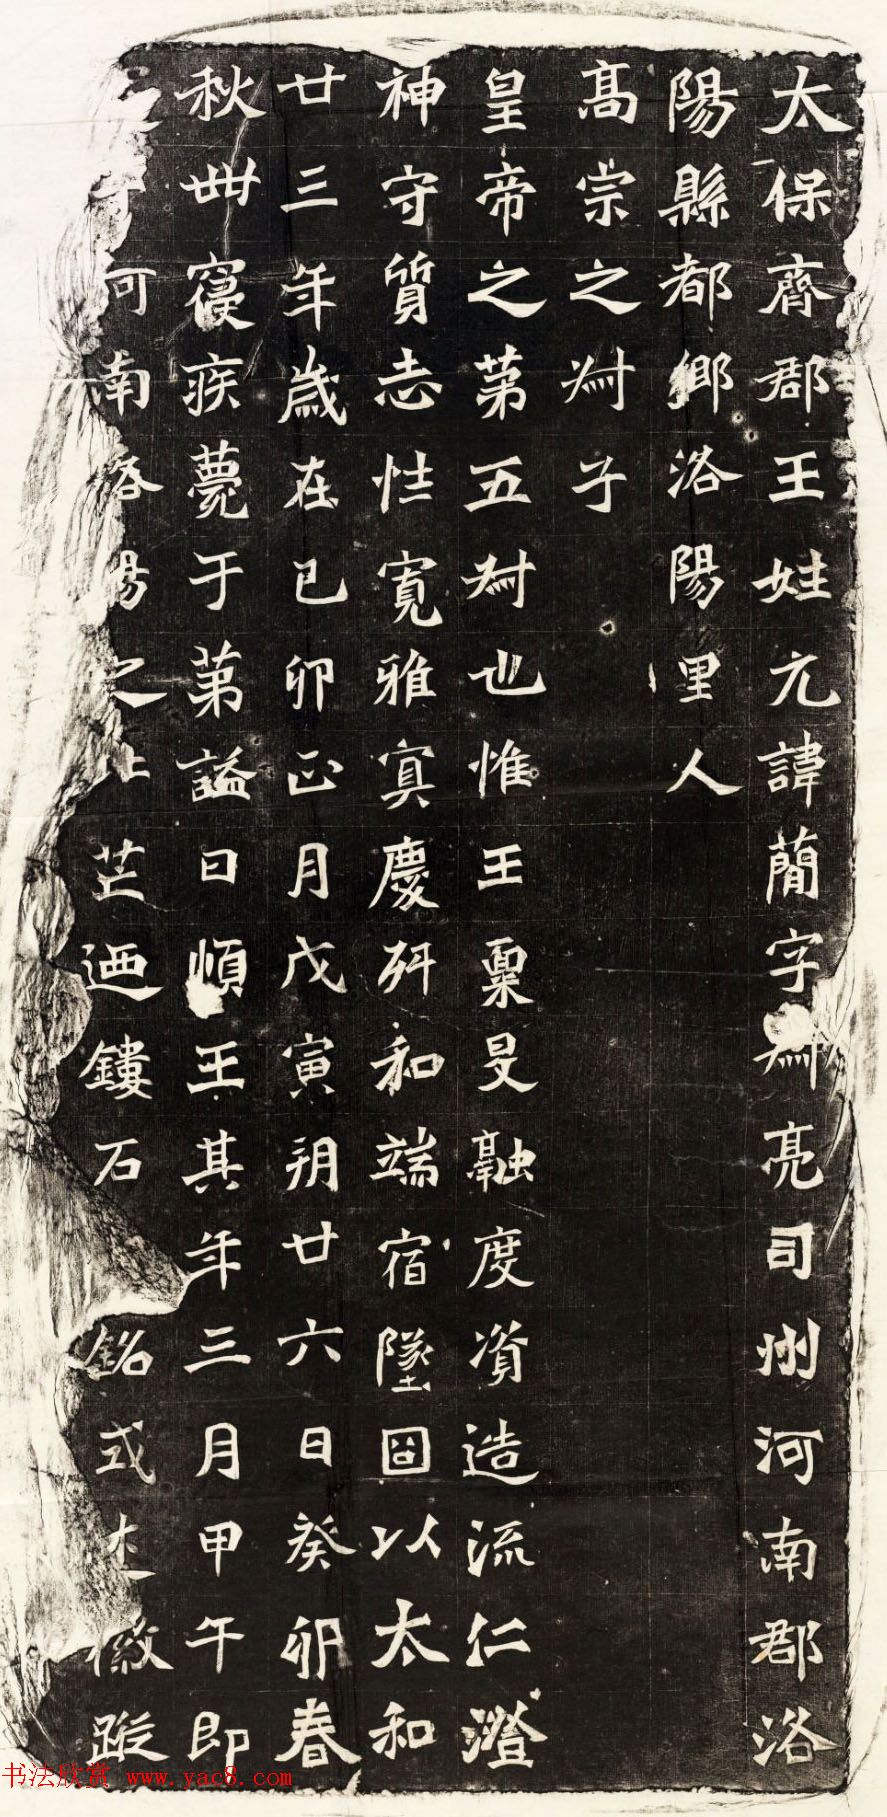 太保齊郡王姓元諱簡字叔亮司州河南郡洛
陽縣都鄉洛陽里人
高宗之叔子
皇帝之第五叔也惟王稟旻融度資造流仁澄
神守質志性寬雅寘慶舛和端宿墜固以太和
廿三年歲在己卯正月戊寅朔廿六日癸卯春
秋卌寢疾薨于第謚曰順王其年三月甲午即
河南洛陽之北芒迺鏤石銘式述徽蹤
书法欣赏 www.yac8.com